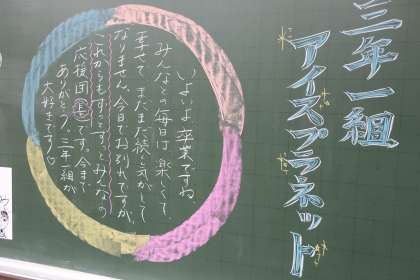 三年一組
アイスプラネット
いよいよ卒業ですね。
みんなとの毎日は楽しくて、
幸せで、まだまだ続く気がして
なりません。今日でお別れですが、
これからもずっとずっとみんなの
応援団長です。今まで
ありがとう。三年一組が
大好きです♡